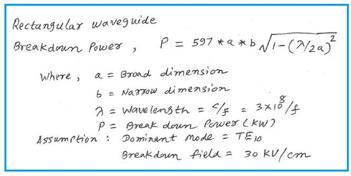 Rectangular waveguide
Breakdown Power, P = 597 * a * b √1-(λ/2a)²
Where, a = Broad dimension
b = Narrow dimension
λ = Wavelength = c/f = 3x10⁸/f
P = Break down Power (KW)
Assumption : Dominant mode = TE10
Breakdown field = 30 KV/cm